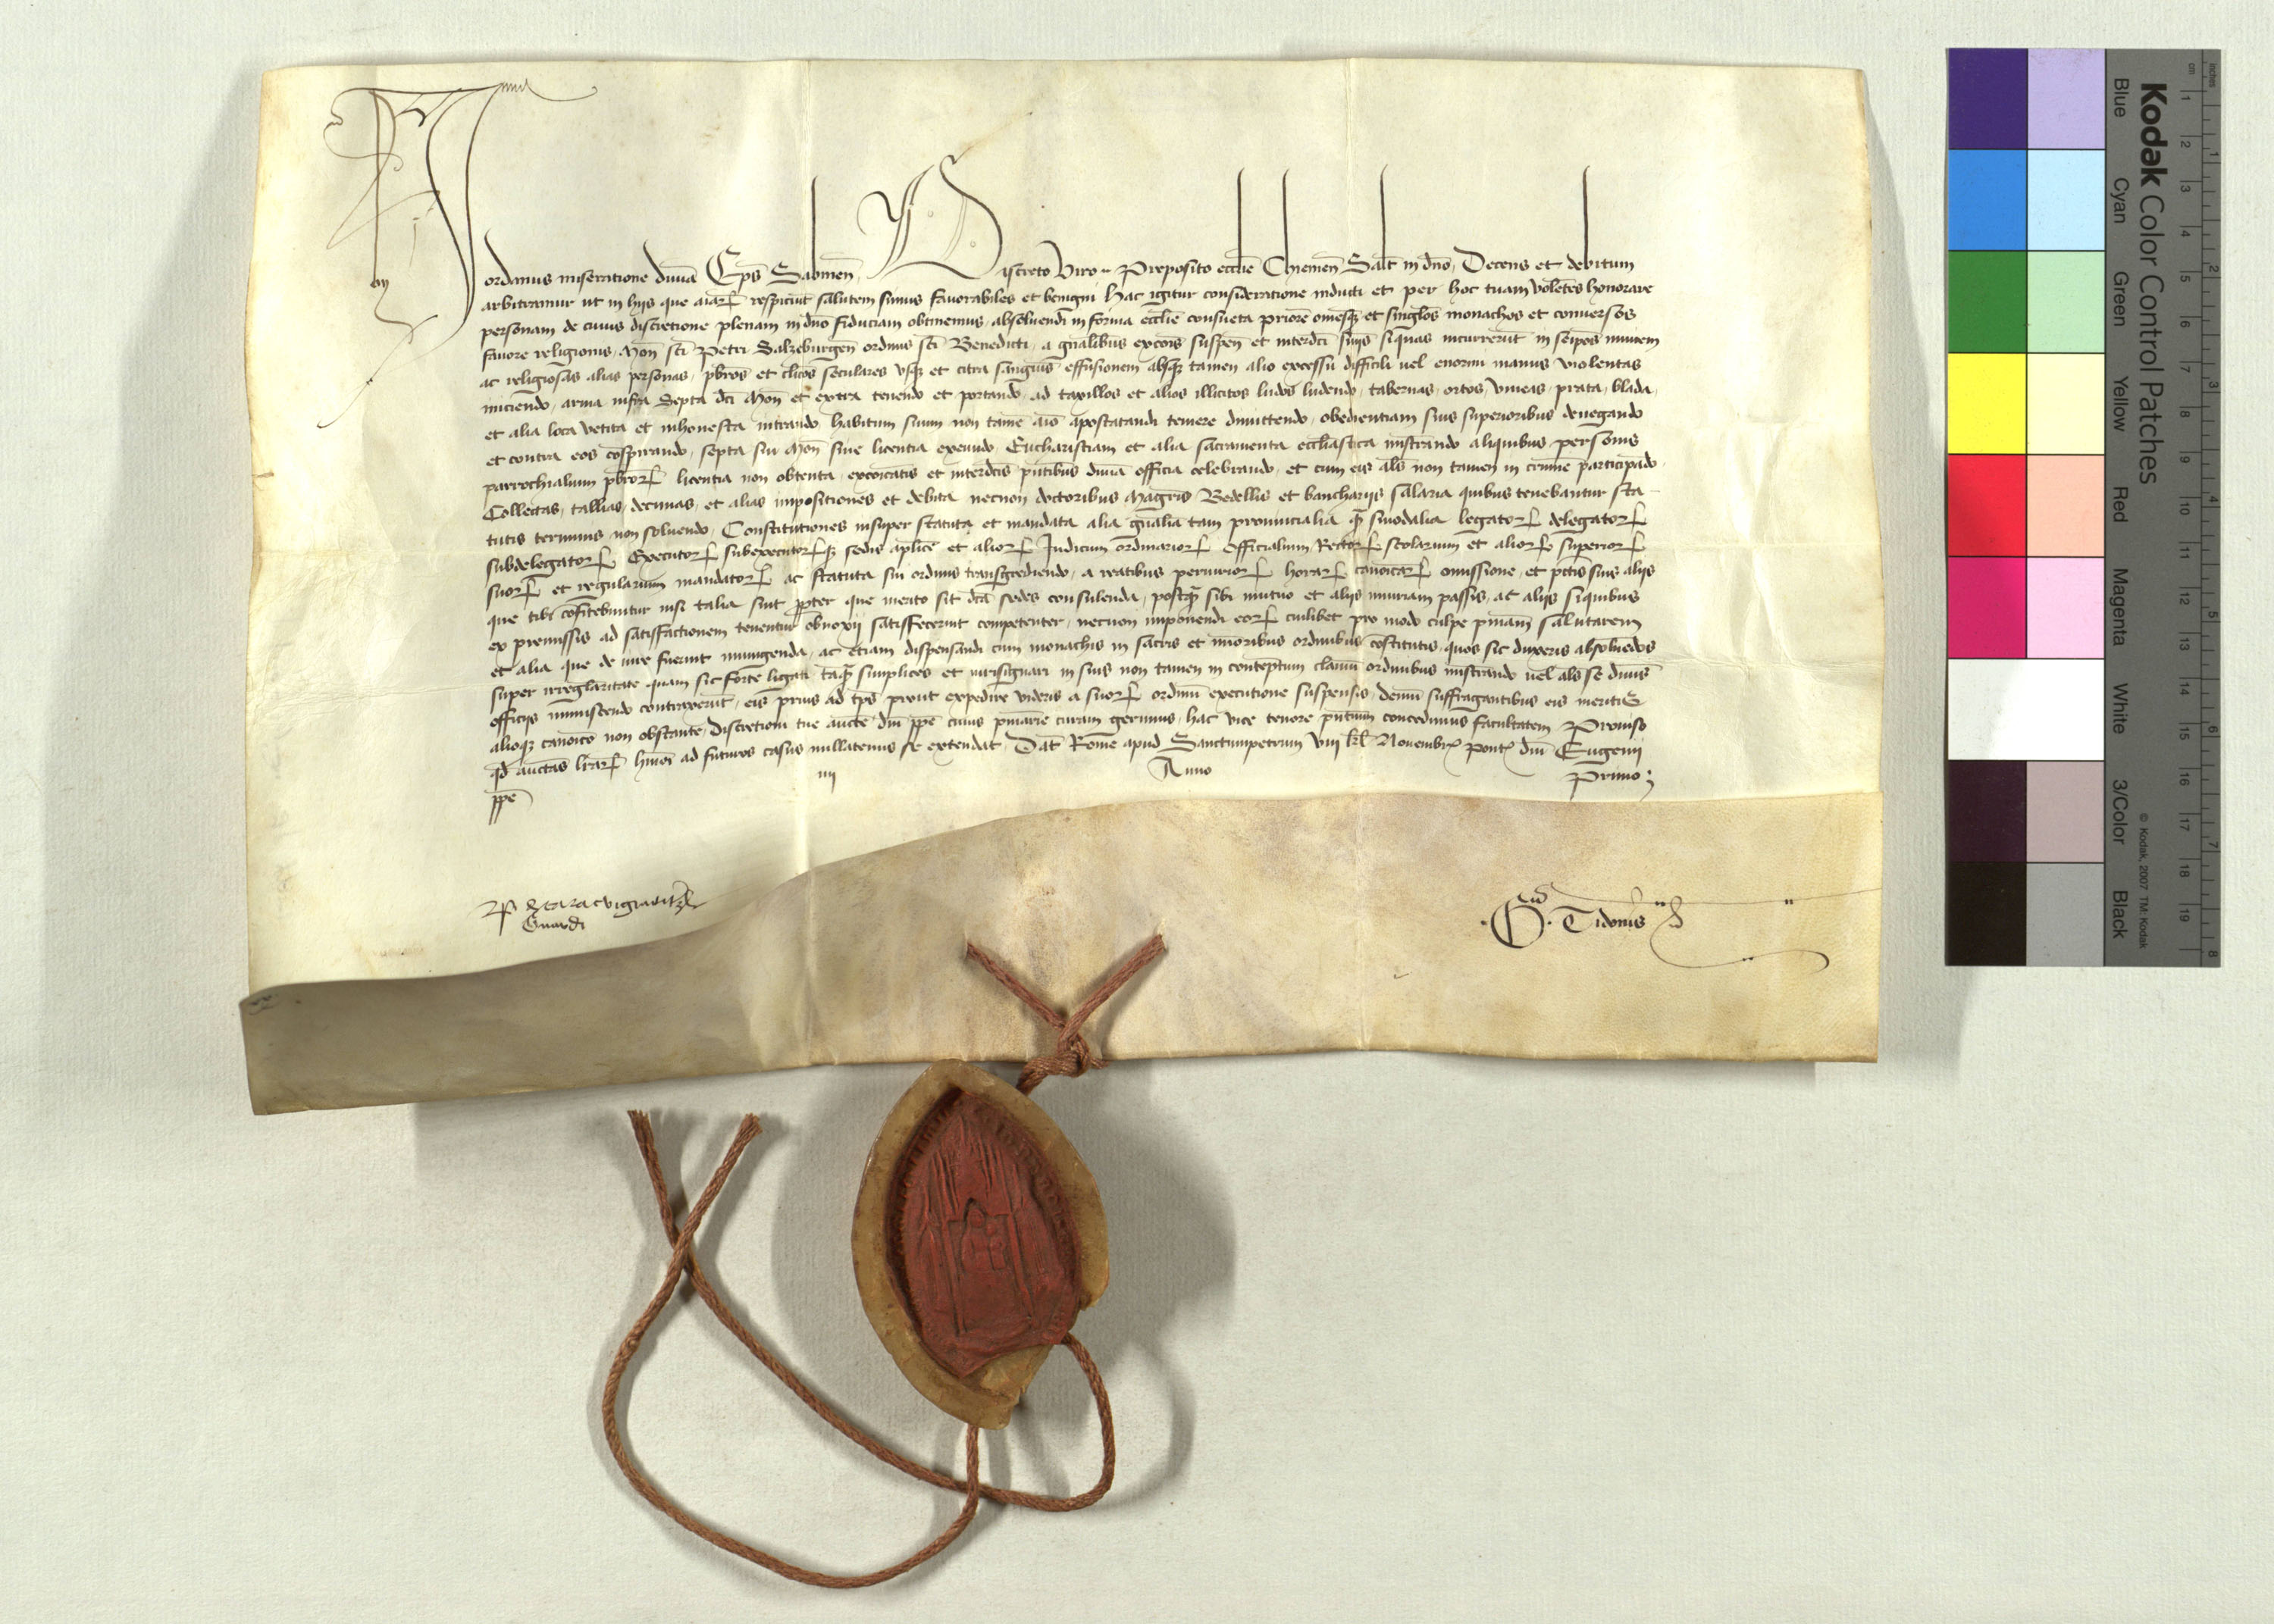 Jordanus miseratione divīa Ep̄s Sabinen̄ Discreto Viro .. Preposito eccl̄ie Chiemen̄ Salt̄ in dn̄o, Decens et debitum
arbitramur ut in hijs que aīarꝝ respiciūt salutem simus favorabiles et benigni hac igitur consideratione inducti et per hoc tuam volētes honorare
personam de cuius discretione plenam in dn̄o fiduciam obtinemus, absolvendi in forma eccl̄ie consueta priorē om̄esqꝫ et sinḡlos monachos et conversos
favore religionis, Mon̄ sc̄i Petri Salzeburgen̄ ordinis sc̄i Benedicti, a gn̄alibus excōis suspen̄ et interdc̄i sn̄ijs siquas incurrerūt in seip̄os invicem
ac religiosas alias personas, pb̄ros et cl̄icos seculares usqꝫ et citra sanguīs effusionem absqꝫ tamen alio excessu difficili uel enormi manus violentas
iniciendo, arma infra Septa dc̄i Mon̄ et extra tenendo et portando, ad taxillos et alios illicitos ludos ludendo, tabernas, ortos, vineas, prata, blada,
et alia loca vetita et inhonesta intrando habitum suum non tamē aīo apostatandi temere dimittendo, obedientiam suis superioribus denegando
et contra eos cōspirando, septa sui Mon̄ sine licentia exeundo Eucharistiam et alia sacramenta eccl̄iastica mīstrando aliquibus personis
parrochialium pb̄rorꝝ licentia non obtenta, excōicatis et interdc̄is pn̄tibus divīa officia celebrando, et cum eis al̄s non tamen in crimīe participādo
Collectas, tallias, decimas, et alias impositiones et debita necnon doctoribus Magr̄is Bedellis et bancharijs salaria quibus tenebantur sta-
tutis terminis non solvendo, Constitutiones insuper statuta et mandata alia gn̄alia tam provincialia qꝫ sinodalia legatorꝝ delegatorꝝ
subdelegatorꝝ Executorꝝ subexecutorꝝqꝫ sedis ap̄lice et aliorꝝ Judicum ordinariorꝝ Officialium, Rectorꝝ scolarium et aliorꝝ superiorꝝ
suorꝝ et regularium mandatorꝝ ac statuta sui ordinis transgrediendo, a reatibus periuriorꝝ horarꝝ canōicarꝝ omissione, et pc̄tis suis alijs
que tibi cōfitebuntur nisi talia sint ꝓpter que merito sit dc̄a sedes consulenda, postqꝫ sibi mutuo et alijs iniuriam passis, ac alijs siquibus
ex premissis ad satisfactionem tenentur obnoxij satisfecerint competenter, necnon imponendi eorꝝ cuilibet pro modo culpe pn̄iam salutarem
et alia que de iure fuerint iniungenda, ac etiam dispensandi cum monachis in sacris et mīoribus ordinibus cōstitutis, quos sic duxeris absolvēdos
super irreḡlaritate quam sic forte ligati, tāqꝫ simplices et iurisignari in suis non tamen in conteptum claviū ordinibus mīstrando uel al̄s se divīs
officijs immiscendo contraxerūt, eis prius ad tp̄s prout expedire videris a suorꝝ ordinū executione suspensis, demū suffragantibus eis meritis
alioqꝫ canōico non obstante, discretioni tue auct̄e dn̄i p̄pe cuius pn̄iarie curam gerimus, hac vice tenore pn̄tium concedimus facultatem Proviso
qd̄ auctas lr̄arꝝ hmōi ad futuros casus nullatenus se extendat, Dat̄ Rome apud Sanctumpetrum viij kl̄ Novembrꝭ pont̄ dn̄i Eugenij
p̄pe iiij Anno Primo ;
Guardi
Tidonis
Kodak Color Control Patches
© Kodak, 2007 TM: Kodak
Blue Cyan Green Yellow Red Magenta White 3/Color Black
cm 1 2 3 4 5 6 7 8 9 10 11 12 13 14 15 16 17 18 19
inches 1 2 3 4 5 6 7 8